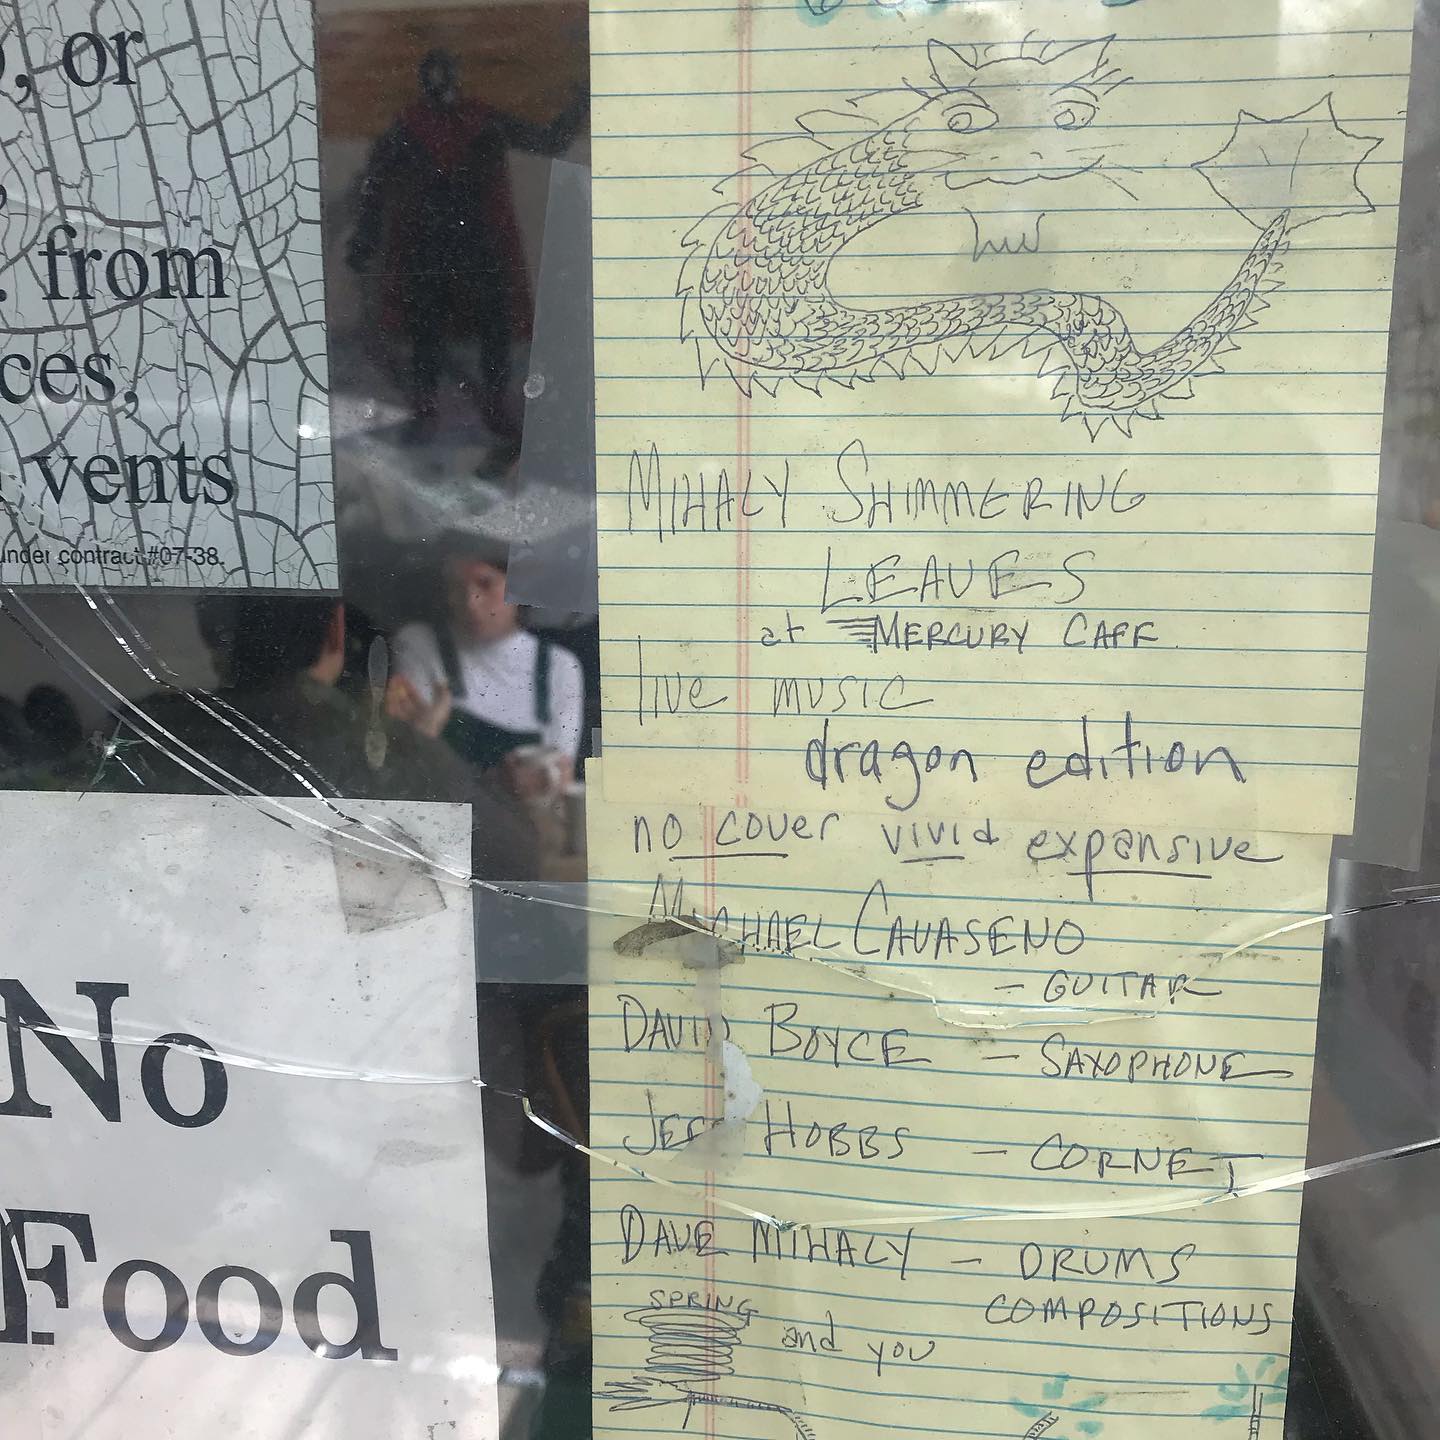 , or
. from
ces,
vents
under contract #07-38.
No
Food
MIHALY SHIMMERING
LEAVES
at MERCURY CAFE
live music
dragon edition
no cover vivid expansive
MICHAEL CAVASENO
- GUITAR
DAVID BOYCE - SAXOPHONE
JEFF HOBBS - CORNET
DAVE MIHALY - DRUMS
COMPOSITIONS
SPRING
and you